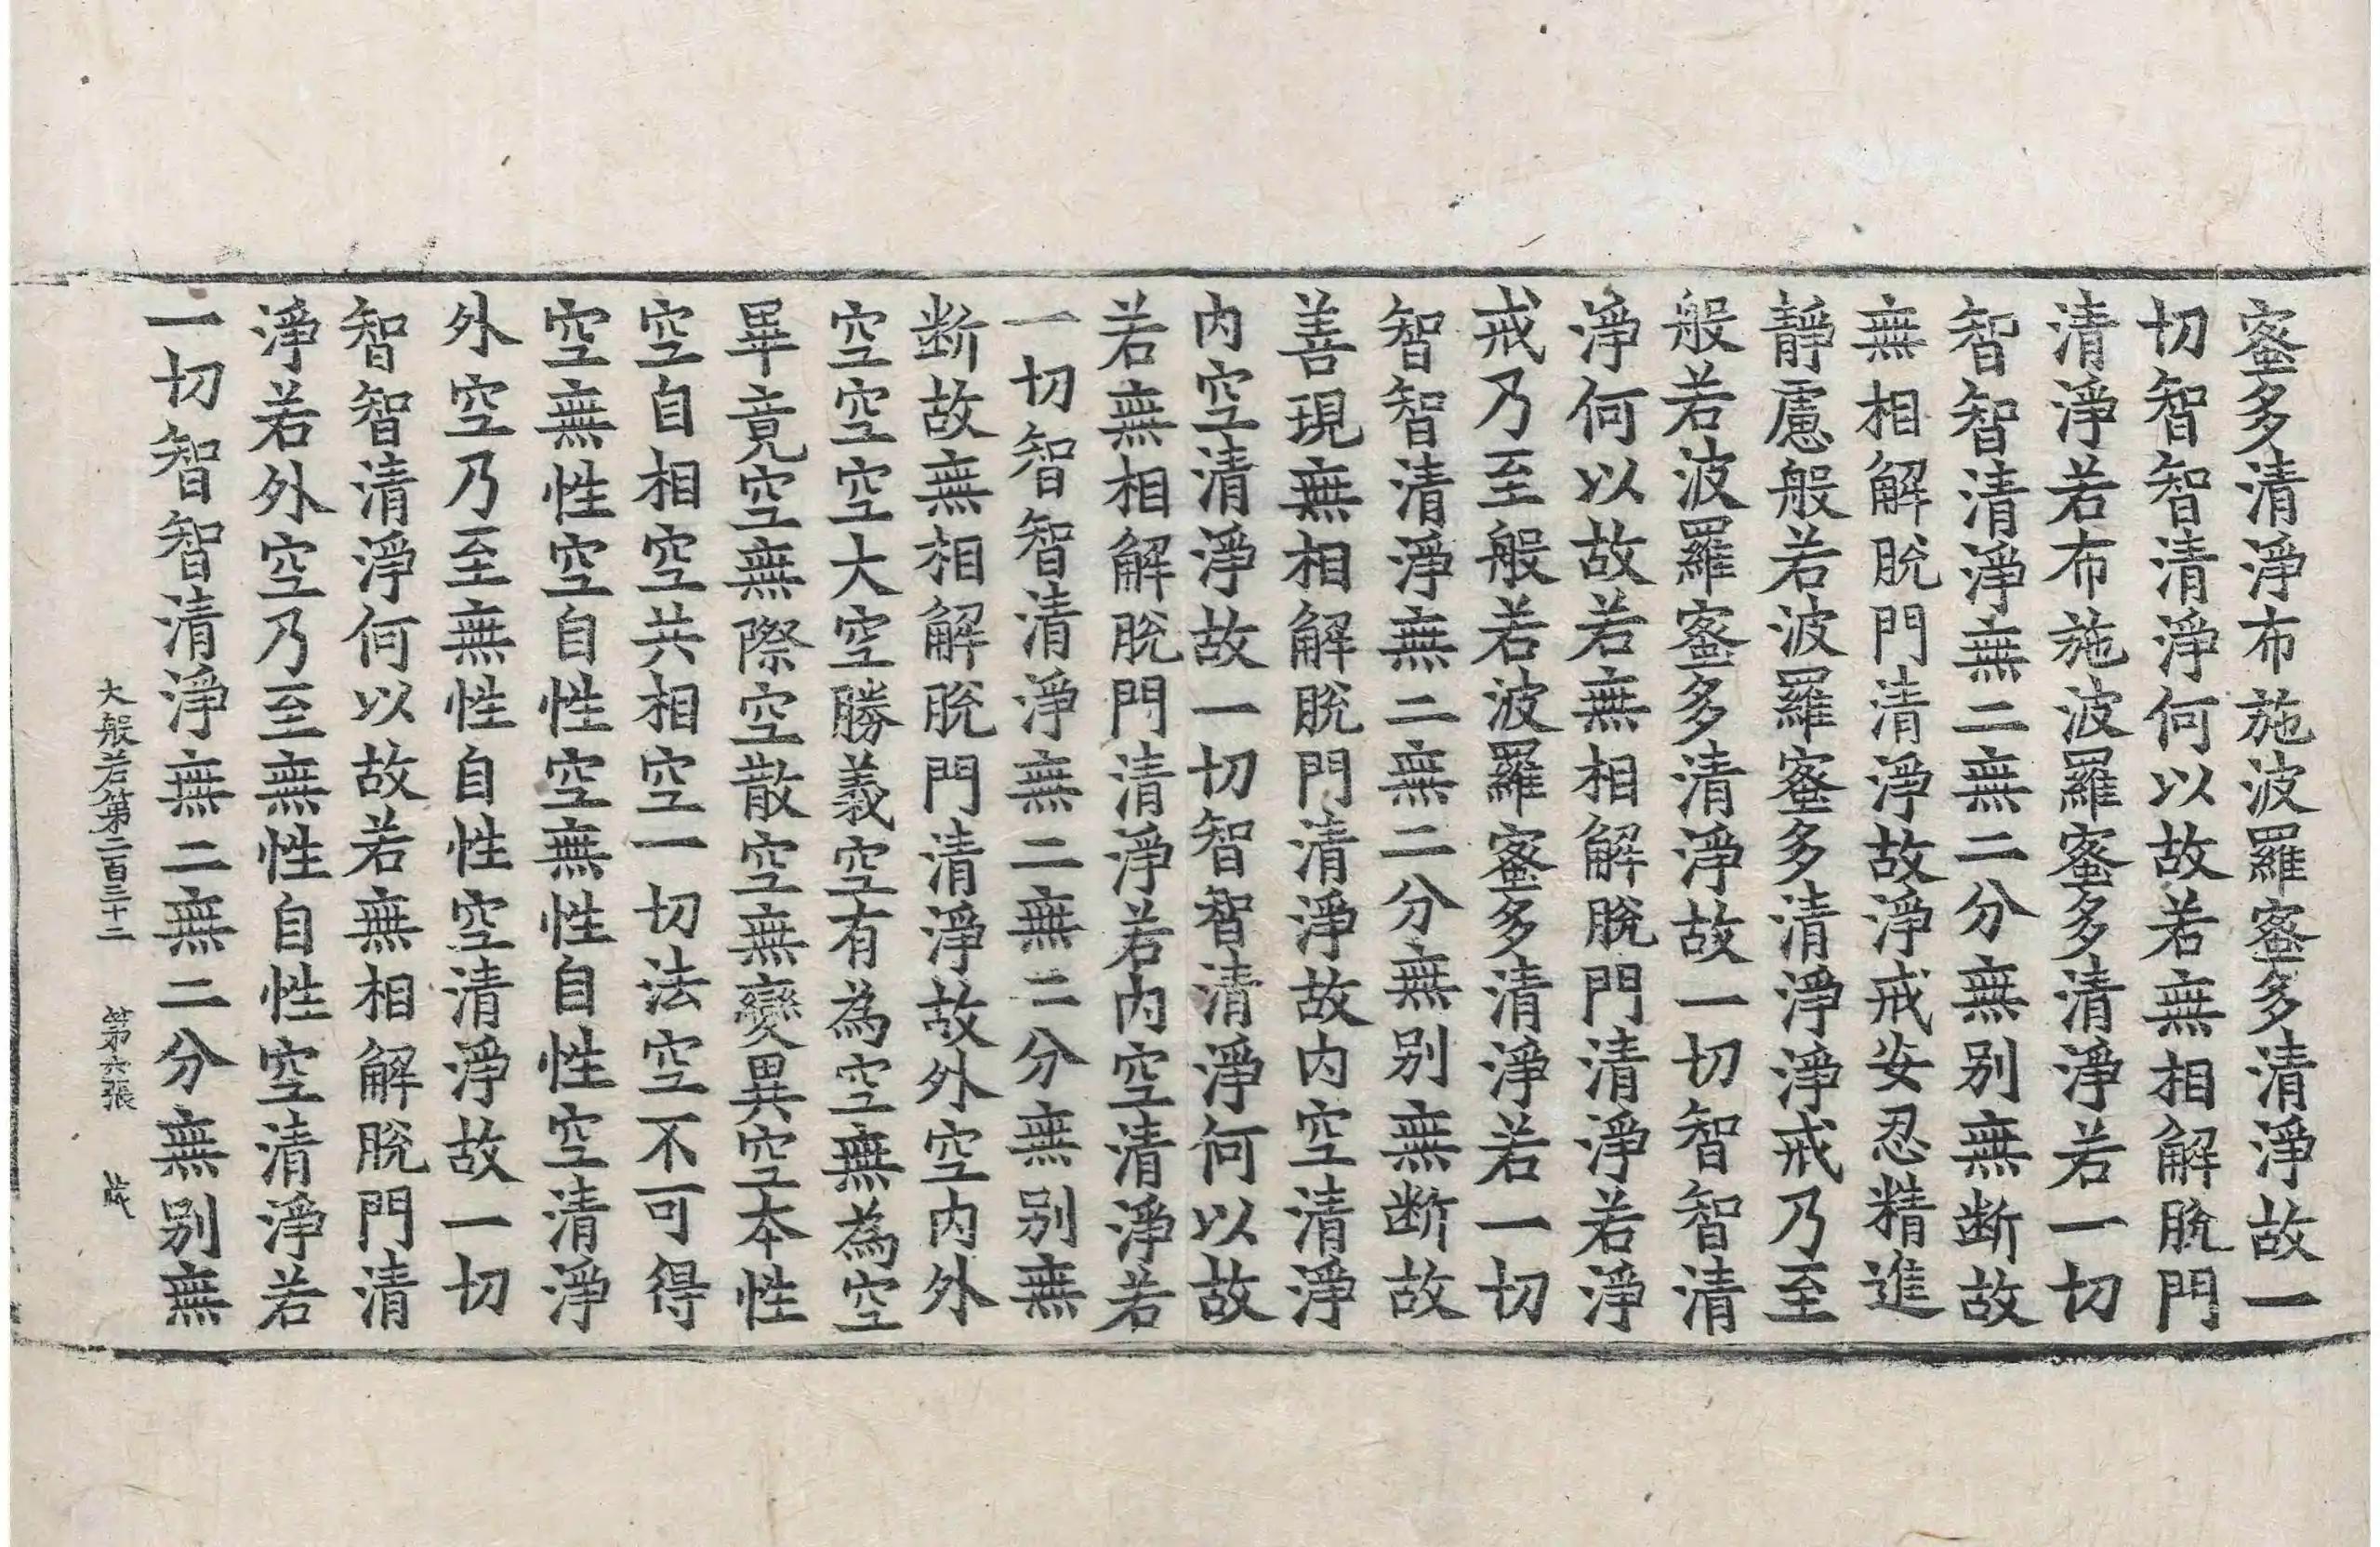 蜜多清淨布施波羅蜜多清淨故一
切智智清淨何以故若無相解脫門
清淨若布施波羅蜜多清淨若一切
智智清淨無二無二分無別無斷故
無相解脫門清淨故淨戒安忍精進
靜慮般若波羅蜜多清淨淨戒乃至
般若波羅蜜多清淨故一切智智清
淨何以故若無相解脫門清淨若淨
戒乃至般若波羅蜜多清淨若一切
智智清淨無二無二分無別無斷故
善現無相解脫門清淨故內空清淨
內空清淨故一切智智清淨何以故
若無相解脫門清淨若內空清淨若
一切智智清淨無二無二分無別無
斷故無相解脫門清淨故外空內外
空空空大空勝義空有為空無為空
畢竟空無際空散空無變異空本性
空自相空共相空一切法空不可得
空無性空自性空無性自性空清淨
外空乃至無性自性空清淨故一切
智智清淨何以故若無相解脫門清
淨若外空乃至無性自性空清淨若
一切智智清淨無二無二分無別無
大般若第二百三十二 第六張